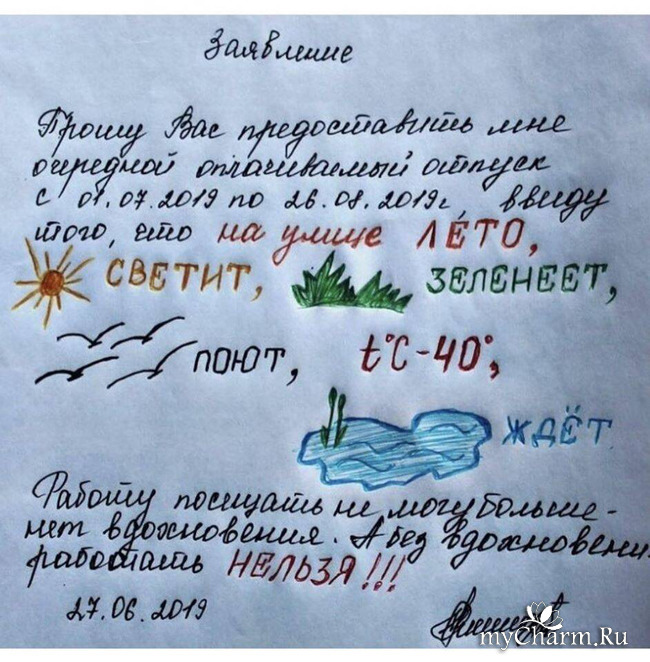 Заявление
Прошу Вас предоставить мне
очередной оплачиваемый отпуск
с 01.07.2019 по 26.08.2019г, ввиду
того, что на улице ЛЕ́ТО,
СВЕТИТ, ЗЕЛЕНЕЕТ,
ПОЮТ, t°C-40°,
ЖДЁТ.
Работу посещать не могу больше -
нет вдохновения. А без вдохновени
работать НЕЛЬЗЯ!!!
27.06.2019
myCharm.Ru